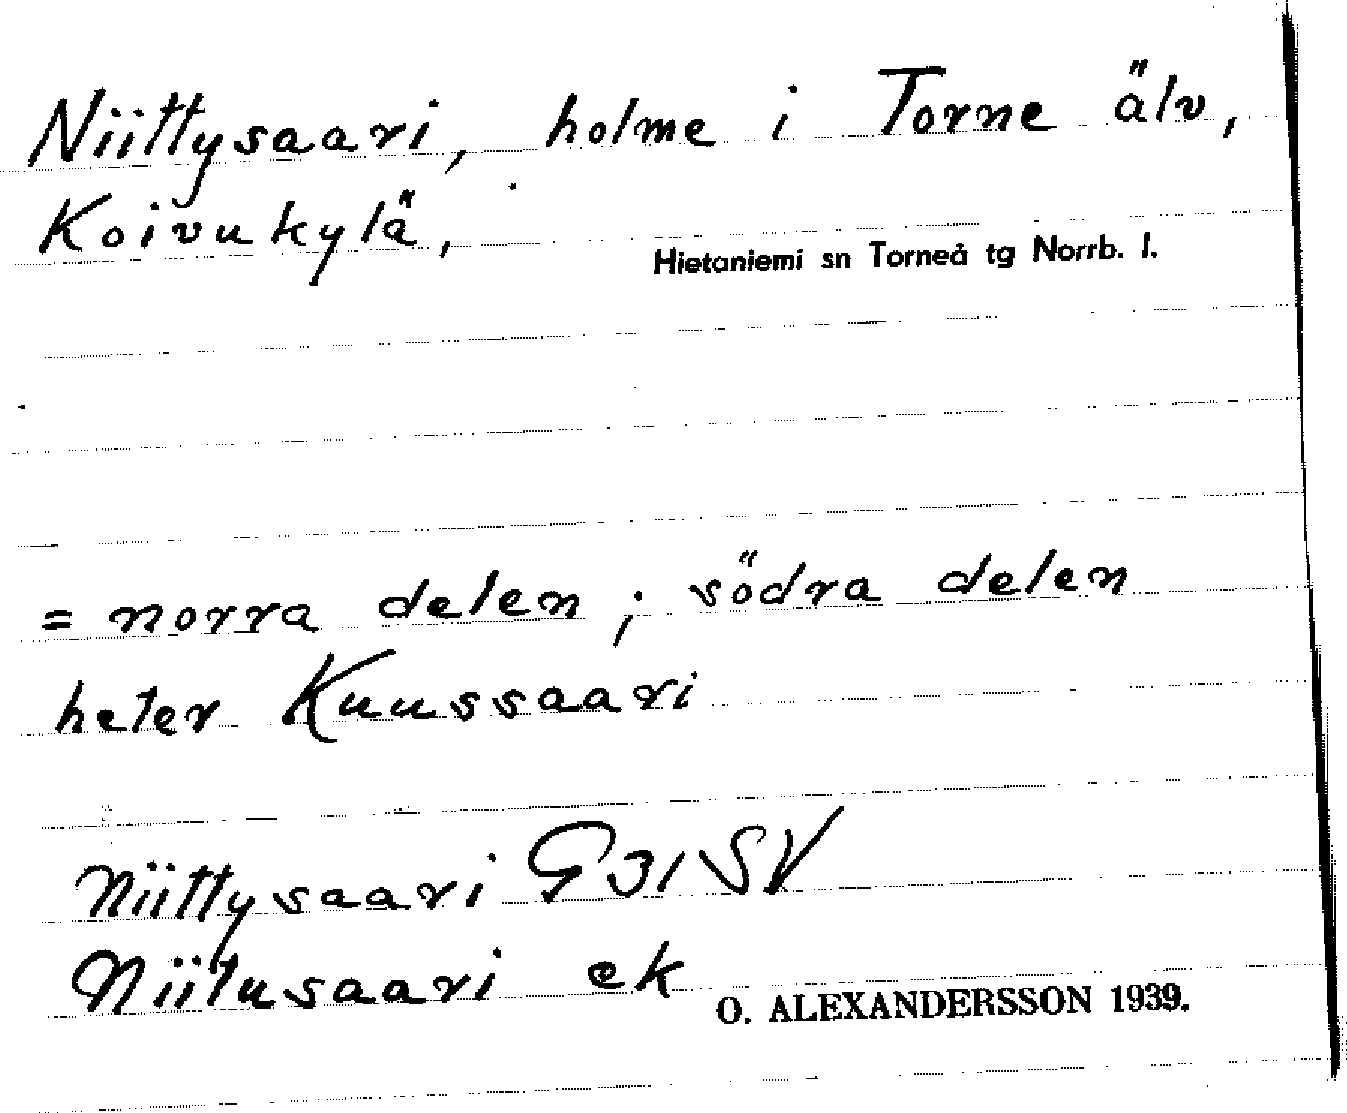 Niittysaari, holme i Torne älv,
Koivukylä,
Hietaniemi sn Torneå tg Norrb. l.
= norra delen ; södra delen
heter Kuussaari
Niittysaari G 31 SV
Niitusaari ek
O. ALEXANDERSSON 1939.